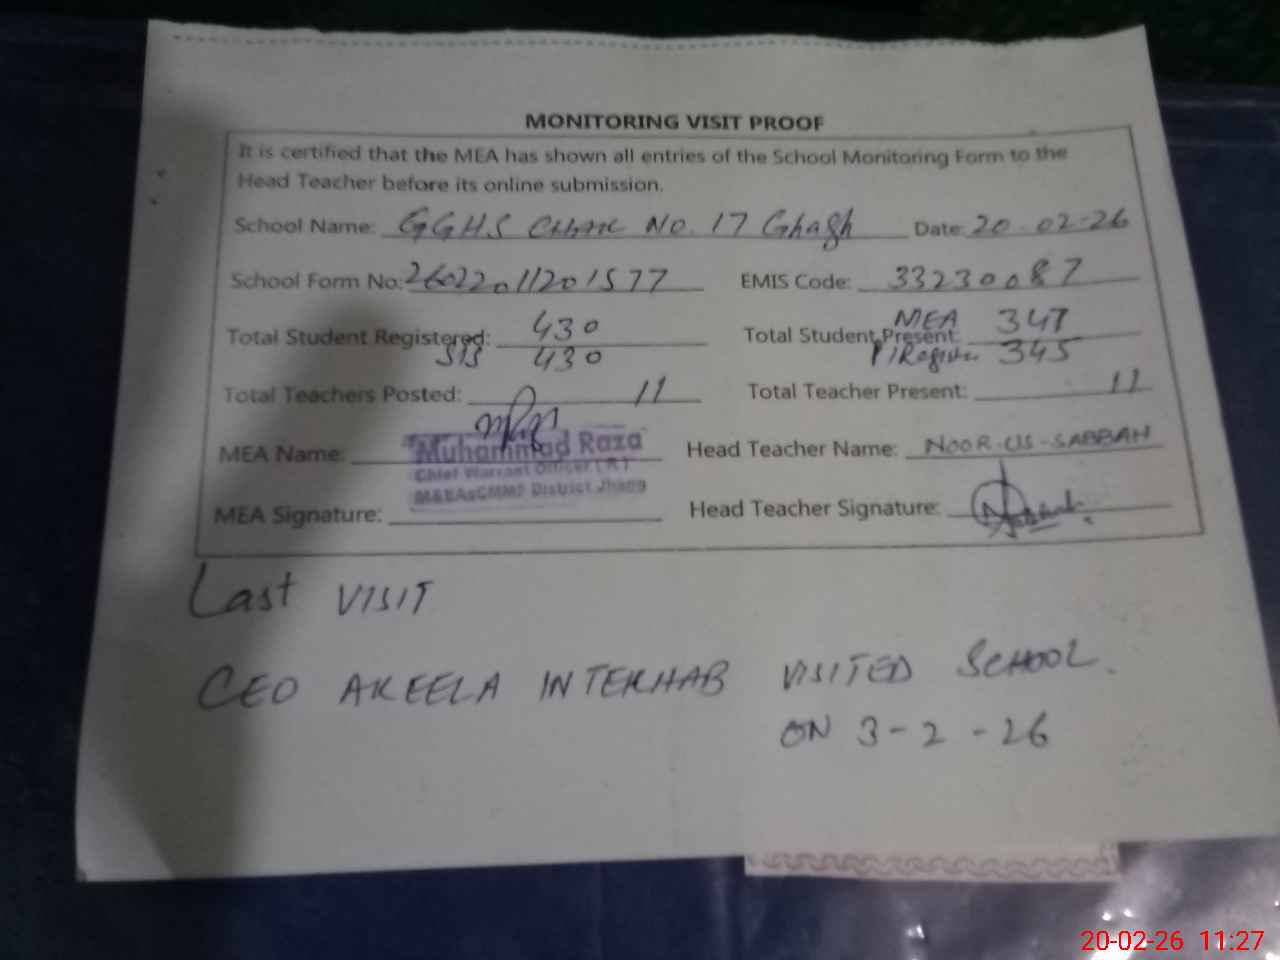 MONITORING VISIT PROOF
It is certified that the MEA has shown all entries of the School Monitoring Form to the
Head Teacher before its online submission.
School Name: GGHS CHAK No. 17 Ghagh Date: 20-02-26
School Form No: 26022011201577 EMIS Code: 33230087
Total Student Registered: 430 Total Student Present: MEA 347
SIS 430 Register 345
Total Teachers Posted: 11 Total Teacher Present: 11
MEA Name: Muhammad Raza Head Teacher Name: NOOR-US-SABBAH
Chief Warrant Officer (R)
District Jhang
MEA Signature: Head Teacher Signature:
Last VISIT
CEO AKEELA INTEKHAB VISITED SCHOOL.
ON 3-2-26
20-02-26 11:27